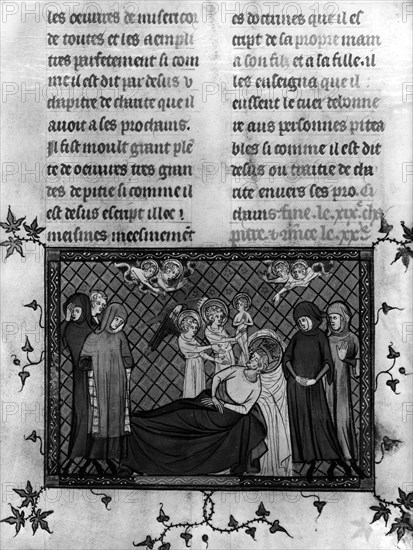 les oeuvres de misericor
de toutes et les a empli
tres parfetement si com
me il est dit par desus ou
chapitre de charite que il
avoit a ses prochains.
Il fist moult grant plen
te de oeuvres tres gran
des de pitie si comme il
est desus escript illoec
meismes meesmement
es doctrines que il es
cript de sa propre main
a son filz et a sa fille. il
les enseigna que il
eussent le cuer debonne
re aus personnes pitea
bles si comme il est dit
desus ou traitie de cha
rite envers ses pro
chains. fine. le .xix. cha
pitre.